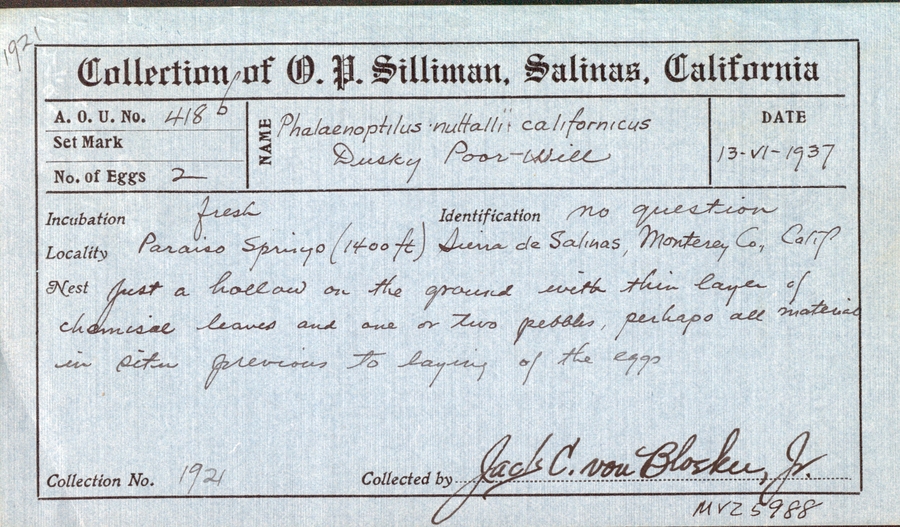 1921
Collection of O. P. Silliman, Salinas, California
A. O. U. No. 418 b
Set Mark
No. of Eggs 2
NAME Phalaenoptilus nuttallii californicus
Dusky Poor-Will
DATE
13-VI-1937
Incubation fresh Identification no question
Locality Paraiso Springs (1400 ft) Sierra de Salinas, Monterey Co., Calif
Nest Just a hollow on the ground with thin layer of
chamisal leaves and one or two pebbles, perhaps all material
in situ previous to laying of the eggs
Collection No. 1921 Collected by Jack C. von Bloeker, Jr.
MVZ 5988